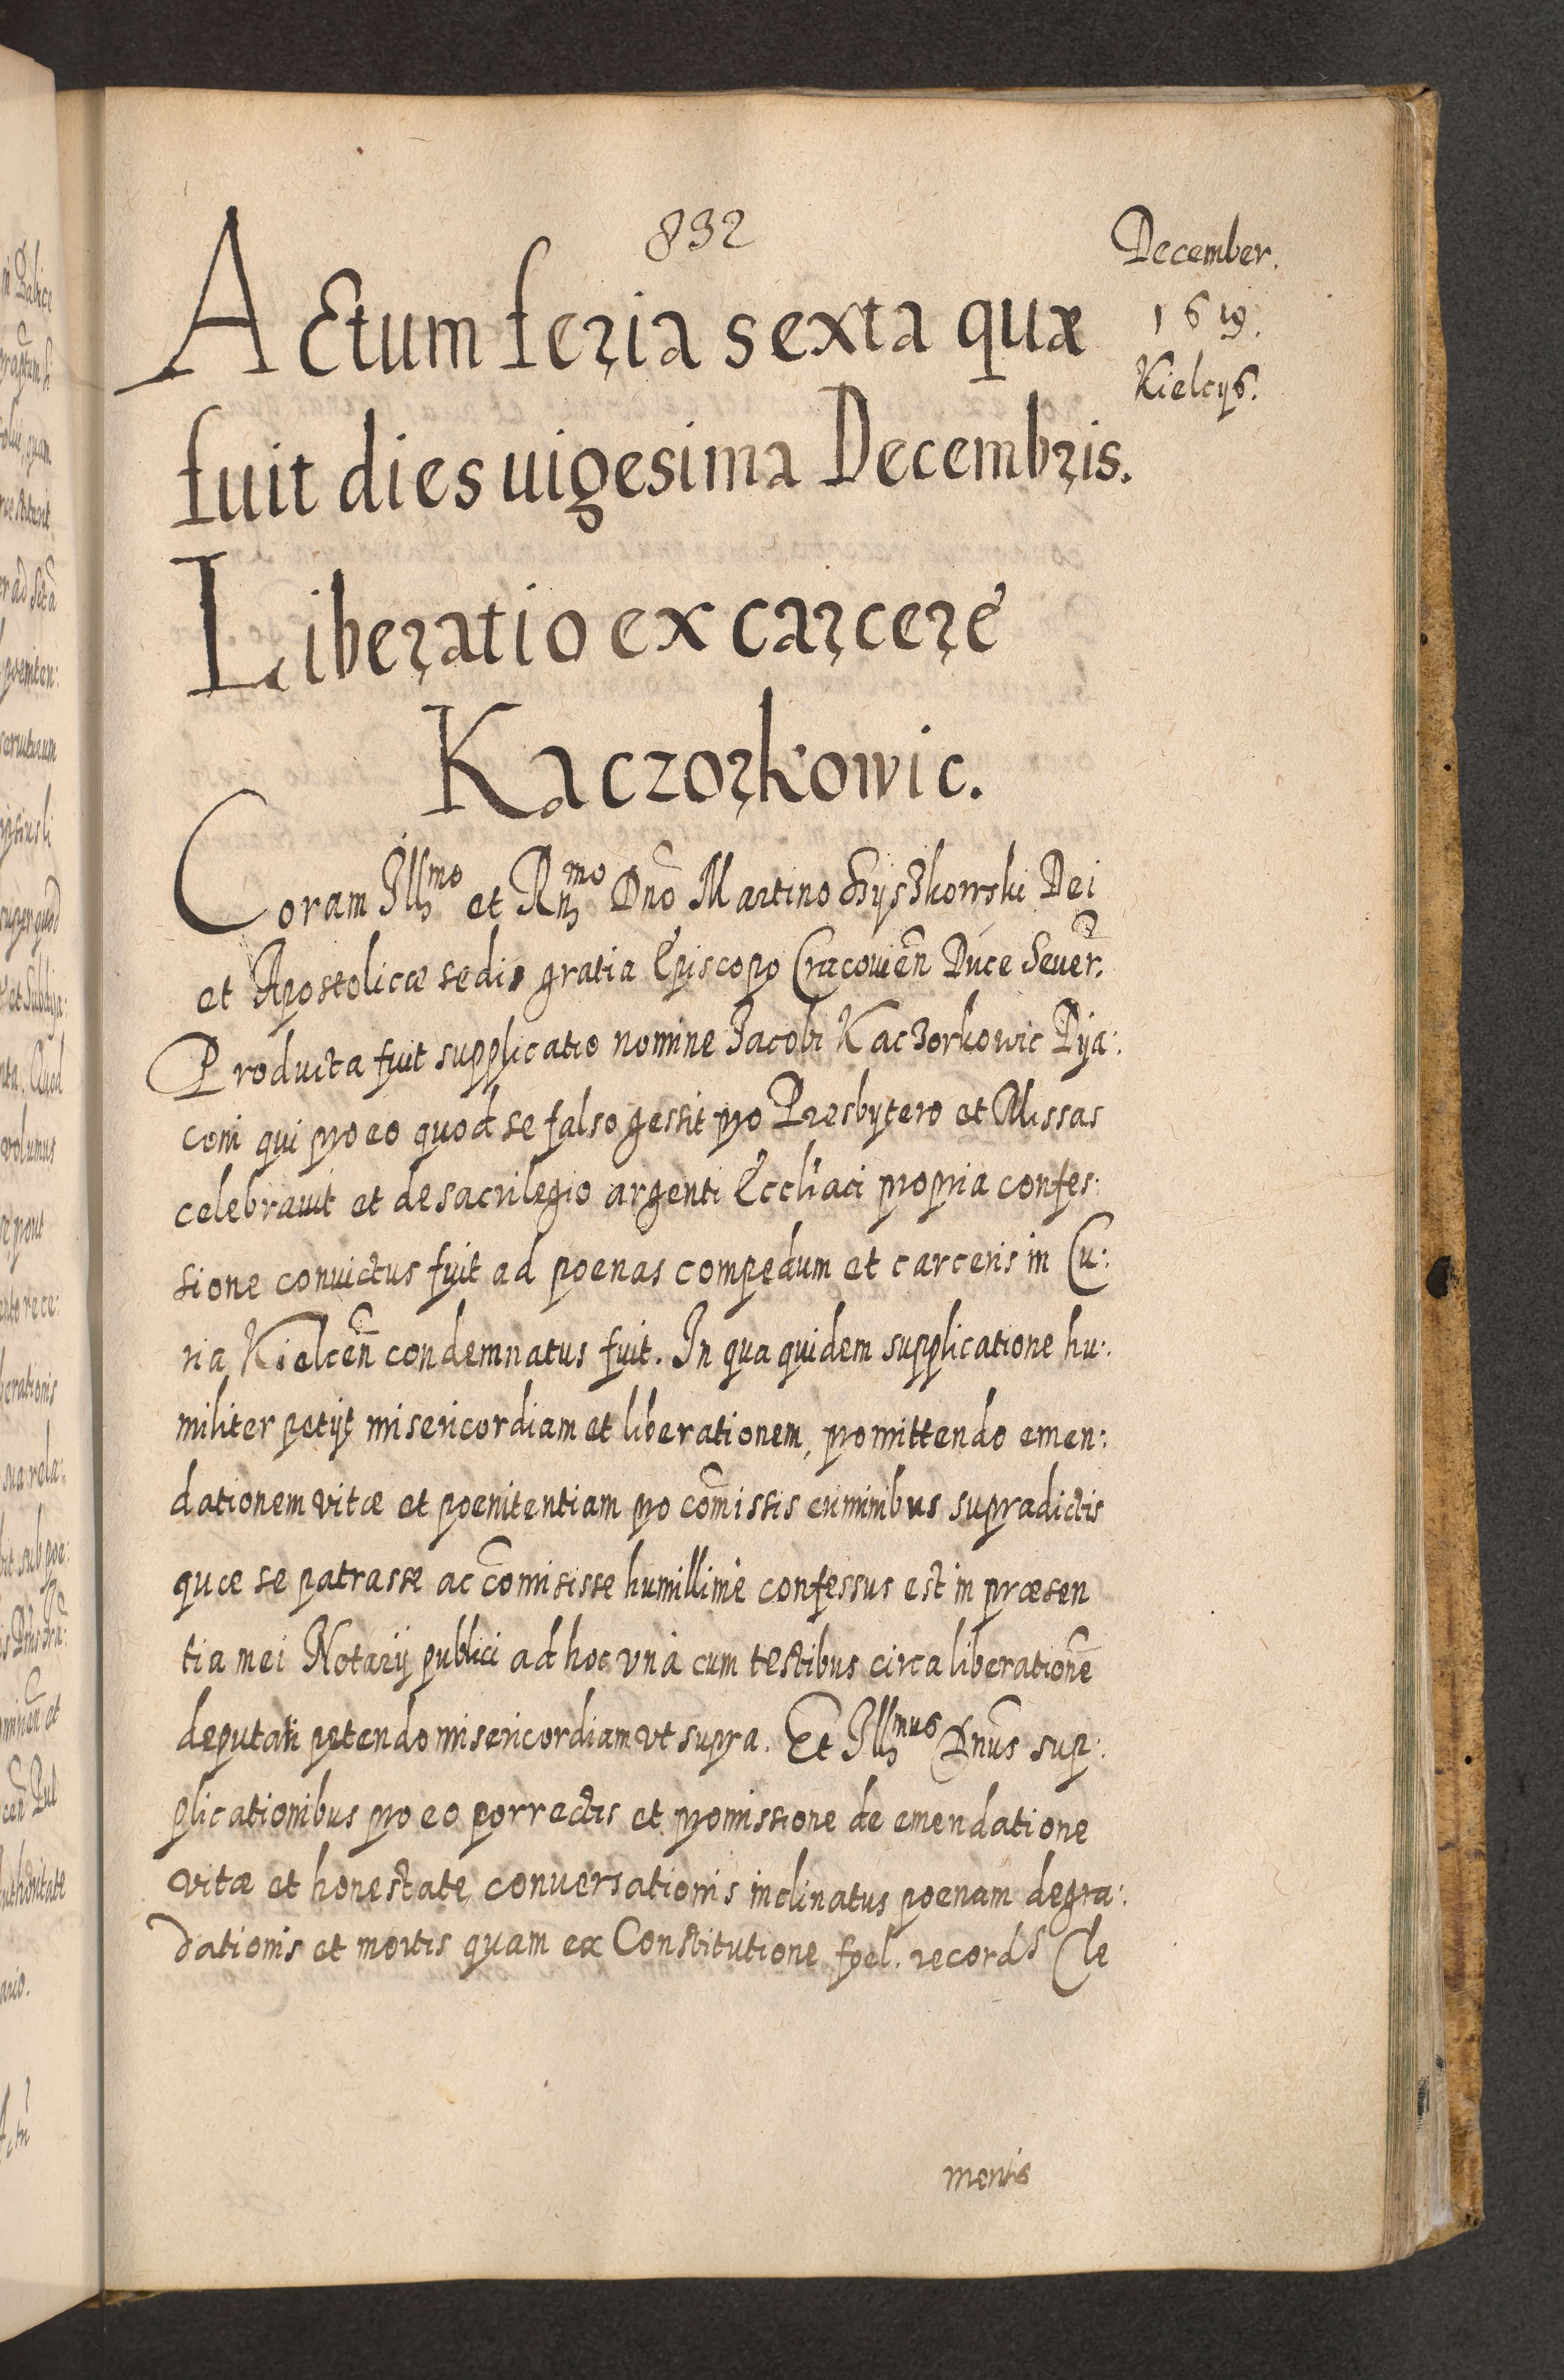 832
December.
1619.
Kielcys.
Actum feria sexta quæ
fuit dies uigesima Decembris.
Liberatio ex carcere
Kaczorkowic.
Coram Illmo et Rnmo Dno Martino Szyszkowski Dei
et Apostolicæ sedis gratia Episcopo Cracovien Duce Sever:
Producta fuit supplicatio nomine Jacobi Kaczorkowic Dya:
coni qui pro eo quod se falso gessit pro Presbytero et Missas
celebravit et de sacrilegio argenti Eccliaci propria confes:
sione convictus fuit ad poenas compedum et carceris in Cu:
ria Kielcen condemnatus fuit. In qua quidem supplicatione hu:
militer petijt misericordiam et liberationem, promittendo emen:
dationem vitæ et poenitentiam pro comissis criminibus supradictis
quæ se patrasse ac comisisse humillimè confessus est in præsen
tia mei Notarij publici ad hoc vnà cum testibus circa liberatione
deputati petendo misericordiam vt supra. Et Illmus Dnus sup:
plicationibus pro eo porrectis et promissione de emendatione
vitæ et honestate conversationis inclinatus poenam degra:
dationis et mortis quam ex Constitutione foel. record Cle
mentis